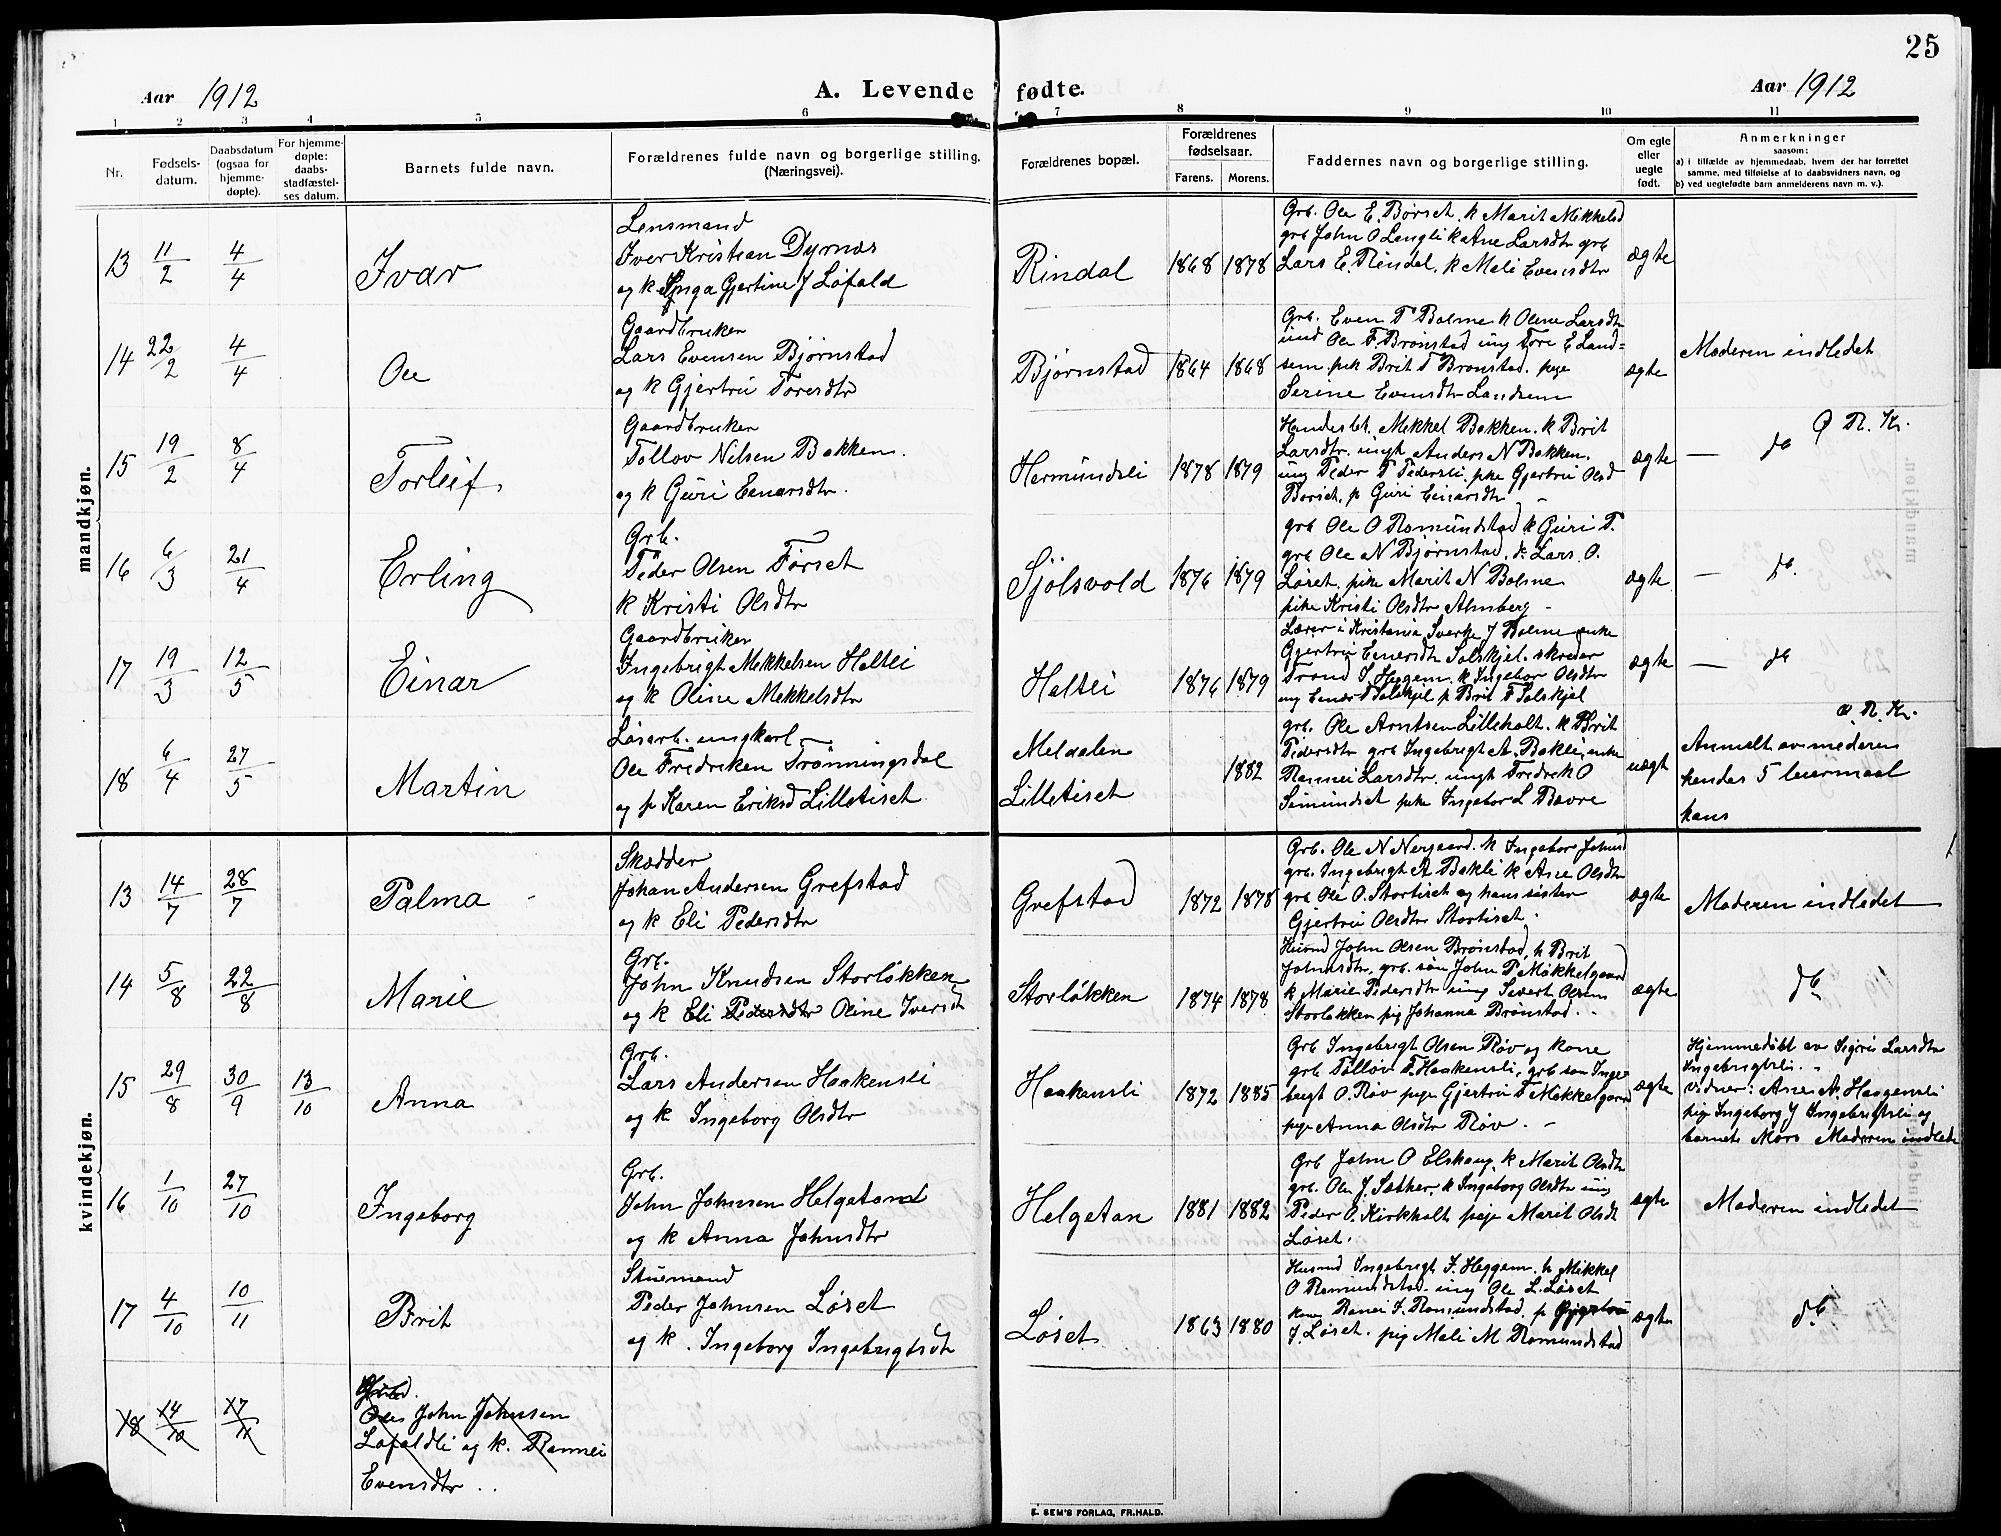 25
Aar 1912
A. Levende fødte.
Aar 1912
1 2 3 4 5 6 7 8 9 10 11
Nr.
Fødsels-
datum.
Daabsdatum
(ogsaa for
hjemme-
døpte).
For hjemme-
døpte:
daabs-
stadfæstel-
ses datum.
Barnets fulde navn.
Forældrenes fulde navn og borgerlige stilling.
(Næringsvei).
Forældrenes bopæl.
Forældrenes
fødselsaar.
Farens. Morens.
Faddernes navn og borgerlige stilling.
Om egte
eller
uegte
født.
Anmerkninger
saasom:
a) i tilfælde av hjemmedaab, hvem der har forrettet
samme, med tilføielse af to daabsvidners navn, og
b) ved uegtefødte barn anmelderens navn m. v.).
mandkjøn.
13 11/2 4/4 Ivar
Lensmand
Iver Kristian Dyrnæs
og k Inga Gjertine J Løfald
Rindal 1868 1878
Grb. Ole E. Børset, k Marit Mikkelsd
grb John O Lengli k Ane Larsdtr grb
Lars E. Rindal, k Mali Evensdtr
ægte
14 22/2 4/4 Ole
Gaardbruker
Lars Evensen Bjørnstad
og k Gjertru Toresdtr
Bjørnstad 1864 1868
Grb. Even T Bolme k Oline Larsdtr
und Ole T. Brønstad ung Tore E Land=
sem pik Brit T Brønstad, pige
Serine Evensdtr Landsem
ægte
Moderen indledet
15 19/2 8/4 Torleif
Gaardbruker
Tollov Nilsen Bakken
og k Guri Einarsdtr.
Hermundsli 1878 1879
Handelsb. Mikkel Bakken. k Brit
Larsdtr. ungk Anders N Bakken.
ung Peder T Pedersli, pike Gjertru Olsd
Børset, p Guri Einarsdtr
ægte
— do
16 6/3 21/4 Erling
Grb.
Peder Olsen Førset
k Kristi Olsdtr
Sjølsvold 1876 1879
grb Ole O Romundstad k Guri T.
grb Ole N Bjørnstad, k Lars O.
Løset, pike Marit N Bolme
pike Kristi Olsdtr Almberg -
ægte
— do.
17 19/3 12/5 Einar
Gaardbruker
Ingebrigt Mikkelsen Heltli
og k Oline Mikkelsdtr
Heltli 1876 1879
Lærer i Kristiania Sverke J Bolme enke
Gjertru Einarsdtr Solskjel. skræder
Trond I. Heggem. k Ingebor Olsdtr
ung Einar T Solskjel p Brit T Solskjel
ægte
— do
18 6/4 27/5 Martin
Løsarb. ungkarl
Ole Fredriksen Trønningsdal
og p Karen Eriksd Lilletiset
Meldalen
Lilletiset 1882
grb. Ole Arntsen Lilleholt. k Brit
Pedersdtr grb Ingebrigt A. Bakli, enke
Rannei Larsdtr. ungk Fredrik O
Simundset pike Ingebor L Bævre
uægt
Anmelt av moderen
hendes 5 leiermaal
hans
kvindekjøn.
13 14/7 28/7 Palma
Skrædder
Johan Andersen Grefstad
og k Eli Pedersdtr
Grefstad 1872 1878
Grb. Ole N Nergaard. k Ingebor Johnsd
grb. Ingebrigt A Bakli k Ane Olsdtr
grb Ole O. Stortiset og hans søster
Gjertru Olsdtr Stortiset.
ægte
Moderen indledet
14 5/8 22/8 Marie
Grb.
John Knudsen Storløkken
og k Eli Pedersdtr Oline Iversdtr
Storløkken 1874 1878
Husmd John Olsen Brønstad, k Brit
Johnsdtr, grb. søn John P Mikkelgaard
k Marie Pedersdtr ung Sivert Olsen
Storløkken pig Johanna Brønstad.
ægte
do
15 29/8 30/9 13/10 Anna
Grb.
Lars Andersen Haakensli
og k Ingeborg Olsdtr
Haakensli 1872 1885
Grb Ingebrigt Olsen Røv og kone
grb Tollov T. Haakensli, grb søn Inge
brigt O. Røv pige Gjertru T Mikkelgaard
pige Anna Olsdtr Røv.
ægte
Hjemmedøbt av Sigrid Larsdtr
Ingebrigtsli.
Vidner: Ane A. Haagensli
pig Ingeborg J Ingebrigtsli og
barnets Mors Moderen indledet
16 1/10 27/10 Ingeborg
Grb.
John Johnsen Helgetand
og k Anna Johnsdtr
Helgetan 1881 1882
Grb John O Elshaug, k Marit Olsdtr
grb. Ole J. Sæther, k Ingeborg Olsdtr ung
Peder O. Kirkholt pige Marit Olsdt
Løset.
ægte
Moderen indledet
17 4/10 10/11 Brit
Stuemand
Peder Johnsen Løset
og k. Ingeborg Ingebrigtsdtr
Løset 1863 1880
Husmd Ingebrigt I. Heggem. k Mikkel
O Romundstad. ung Ole L. Løset
kone Ranei I. Romundstad, p Gjertru
J. Løset. pig Mali M Romundstad
ægte
do
18 14/10 17/11
John Johnsen
Løfaldli og k. Rannei
Evensdtr
E. SEM'S FORLAG, FR.HALD.